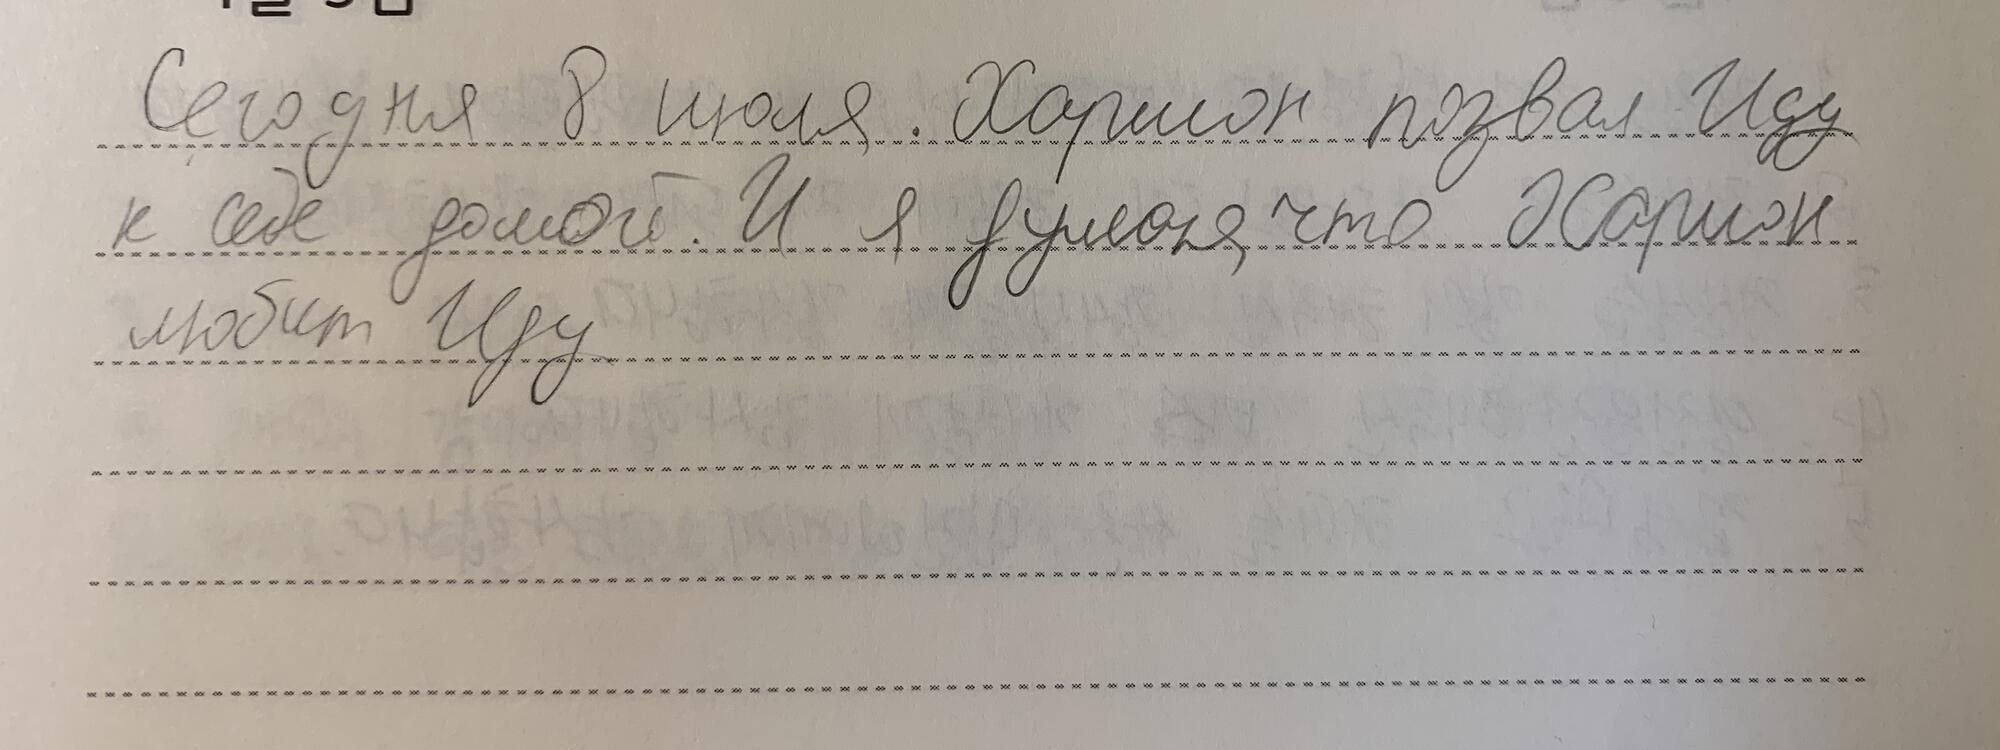 Сегодня 8 июля. Харшон позвал Иду
к себе домой. И я думаю, что Харшон
любит Иду